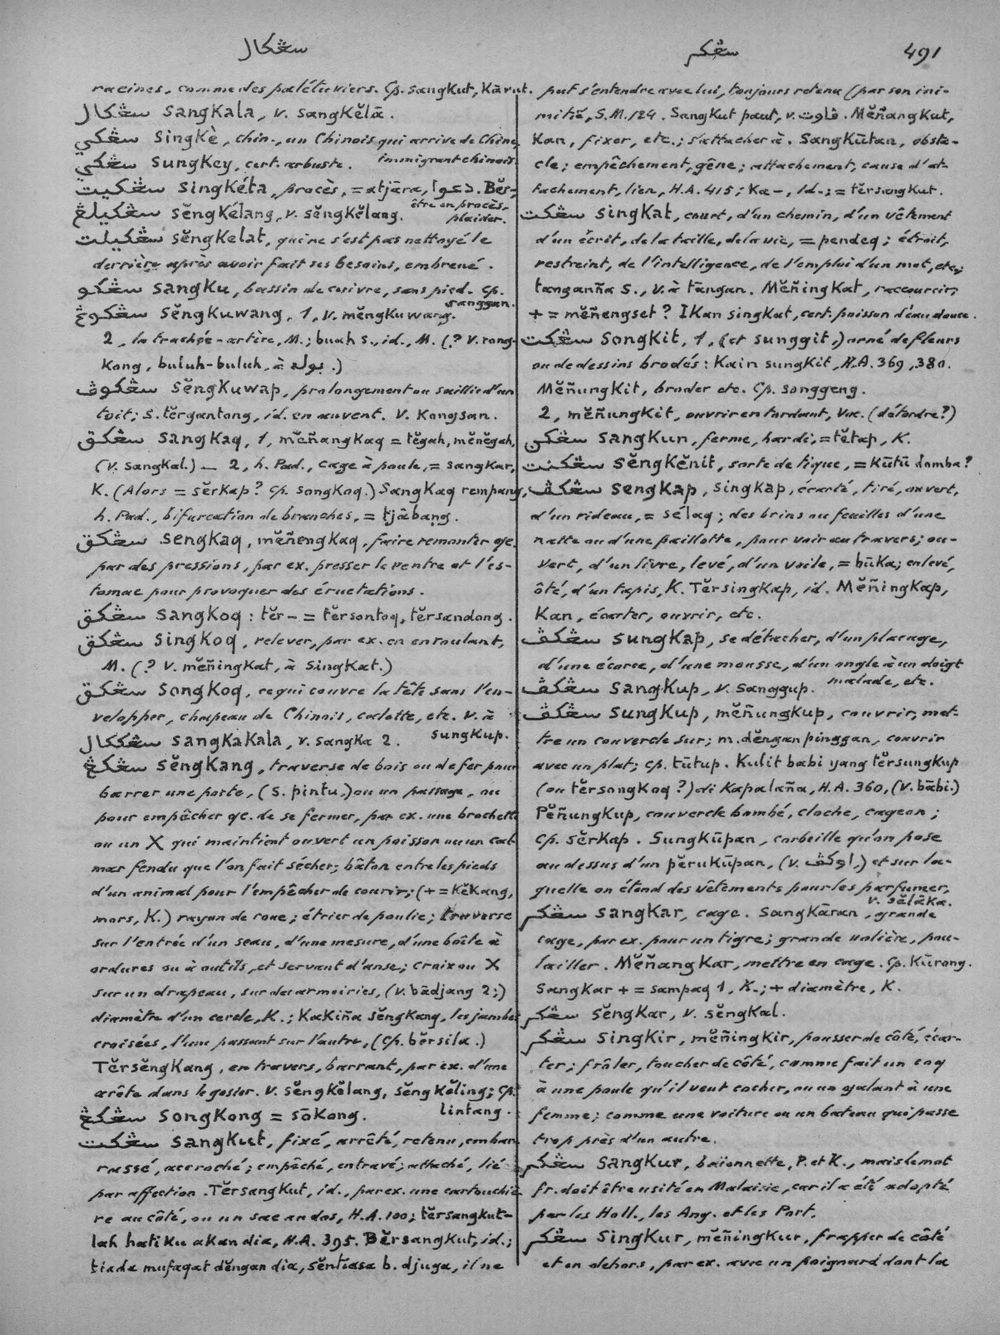 سڠكال
سڠكر
491
racines, comme des palétuviers. Cp. sangkut, Kārut.
سڠكال sangkala, v. sangkĕlā.
سڠكي singkè, chin., un Chinois qui arrive de Chine,
immigrant chinois.
سڠكي sungkey, cert. arbuste.
سڠكيت singkéta, procès, = atjāra, دعوا. Bĕr-,
être en procès, plaider.
سڠكيلڠ sĕngkélang, v. sĕngkĕlang.
سڠكيلت sĕngkelat, qui ne s'est pas nettoyé le
derrière après avoir fait ses besoins, embrené.
سڠكو sangku, bassin de cuivre, sans pied. Cp.
sanggan.
سڠكوڠ sĕngkuwang, 1, v. mĕngkuwang.
2, la trachée-artère, M.; buah s., id., M. (? v. rong-
kong, buluh-buluh, à بوله.)
سڠكوڤ sĕngkuwap, prolongement ou saillie d'un
toit; s. tĕrgantong, id. en auvent. V. Kangsan.
سڠكق sangkaq, 1, mĕñangkaq = tĕgah, mĕnĕgah,
(v. sangkal.) — 2, h. Pad., cage à poule, = sangkar,
K. (Alors = sĕrkap? Cp. songkoq.) Sangkaq rempang,
h. Pad., bifurcation de branches, = tjābang.
سڠكق sengkaq, mĕñengkaq, faire remonter qc.
par des pressions, par ex. presser le ventre et l'es-
tomac pour provoquer des éructations.
سڠكق sangkoq: tĕr- = tĕrsontoq, tĕrsandong.
سڠكق singkoq, relever, par ex. en enroulant,
M. (? V. mĕñingkat, à singkat.)
سڠكق songkoq, ce qui couvre la tête sans l'en-
velopper, chapeau de Chinois, calotte, etc. V. à
sungkup.
سڠككال sangkakala, v. sangka 2.
سڠكڠ sĕngkang, traverse de bois ou de fer pour
barrer une porte, (s. pintu,) ou un passage, ou
pour empêcher qc. de se fermer, par ex. une brochette
ou un X qui maintient ouvert un poisson ou un cal-
mar fendu que l'on fait sécher; bâton entre les pieds
d'un animal pour l'empêcher de courir; (+ = kĕkang,
mors, K.) rayon de roue; étrier de poulie; traverse
sur l'entrée d'un seau, d'une mesure, d'une boîte à
ordures ou à outils, et servant d'anse; croix ou X
sur un drapeau, sur des armoiries, (v. bādjang 2;)
diamètre d'un cercle, K.; Kakiña sĕngkang, les jambes
croisées, l'une passant sur l'autre, (Cp. bĕrsila.)
Tĕrsĕngkang, en travers, barrant, par ex. d'une
arête dans le gosier. V. sĕngkĕlang, sĕngkĕling; Cp.
lintang.
سڠكڠ songkong = sōkong.
سڠكت sangkut, fixé, arrêté, retenu, embar-
rassé, accroché; empêché, entravé; attaché, lié
par affection. Tĕrsangkut, id., par ex. une cartouchiè-
re au côté, ou un sac au dos, H.A. 100; tĕrsangkut-
lah hatiku akan dia, H.A. 395. Bĕrsangkut, id.;
tiada mufaqat dĕngan dia, sĕntiasa b. djuga, il ne
put s'entendre avec lui, toujours retenu (par son ini-
mitié, S.M. 124. Sangkut paut, v. ڤاوت. Mĕñangkut,
kan, fixer, etc.; s'attacher à. Sangkūtan, obsta-
cle; empêchement, gêne; attachement, cause d'at-
tachement, lien, H.A. 415; Ka-, id.; = tĕrsangkut.
سڠكت singkat, court, d'un chemin, d'un vêtement
d'un écrit, de la taille, de la vie, = pendeq; étroit,
restreint, de l'intelligence, de l'emploi d'un mot, etc,;
tanganña s., v. à tāngan. Mĕñingkat, raccourcir;
+ = mĕñengset? Ikan singkat, cert. poisson d'eau douce.
سڠكت songkit, 1, (et sunggit,) orné de fleurs
ou de dessins brodés: Kain sungkit, H.A. 369, 380.
Mĕñungkit, broder etc. Cp. songgeng.
2, mĕñungkit, ouvrir en tordant, Voc. (détordre?)
سڠكن sangkun, ferme, hardi, = tĕtap, K.
سڠكنت sĕngkĕnit, sorte de tique, = Kūtu domba?
سڠكڤ sengkap, singkap, écarté, tiré, ouvert,
d'un rideau, = sélaq; des brins ou feuilles d'une
natte ou d'une paillotte, pour voir au travers; ou-
vert, d'un livre, levé, d'un voile, = būka; enlevé,
ôté, d'un tapis, K. Tĕrsingkap, id. Mĕñingkap,
kan, écarter, ouvrir, etc.
سڠكڤ sungkap, se détacher, d'un placage,
d'une écorce, d'une mousse, d'un ongle à un doigt
malade, etc.
سڠكڤ sangkup, v. sanggup.
سڠكڤ sungkup, mĕñungkup, couvrir, met-
tre un couvercle sur; m. dĕngan pinggan, couvrir
avec un plat; cp. tūtup. Kulit babi yang tĕrsungkup
(ou tĕrsongkoq?) di Kapalaña, H.A. 360, (v. bābi.)
Pĕñungkup, couvercle bombé, cloche, cageon;
Cp. sĕrkap. Sungkūpan, corbeille qu'on pose
au dessus d'un pĕrukūpan, (v. اوكڤ) et sur la-
quelle on étend des vêtements pour les parfumer,
v. sălăka.
سڠكر sangkar, cage. Sangkāran, grande
cage, par ex. pour un tigre; grande volière, pou-
lailler. Mĕñangkar, mettre en cage. Cp. Kūrong.
Sangkar + = sampaq 1, K.; + diamètre, K.
سڠكر sĕngkar, v. sĕngkal.
سڠكر singkir, mĕñingkir, pousser de côté, écar-
ter; frôler, toucher de côté, comme fait un coq
à une poule qu'il veut cocher, ou un galant à une
femme; comme une voiture ou un bateau qui passe
trop près d'un autre.
سڠكر sangkur, baïonnette, P. et K., mais le mot
fr. doit être usité en Malaisie, car il a été adopté
par les Holl., les Ang. et les Port.
سڠكر singkur, mĕñingkur, frapper de côté
et en dehors, par ex. avec un poignard dont la